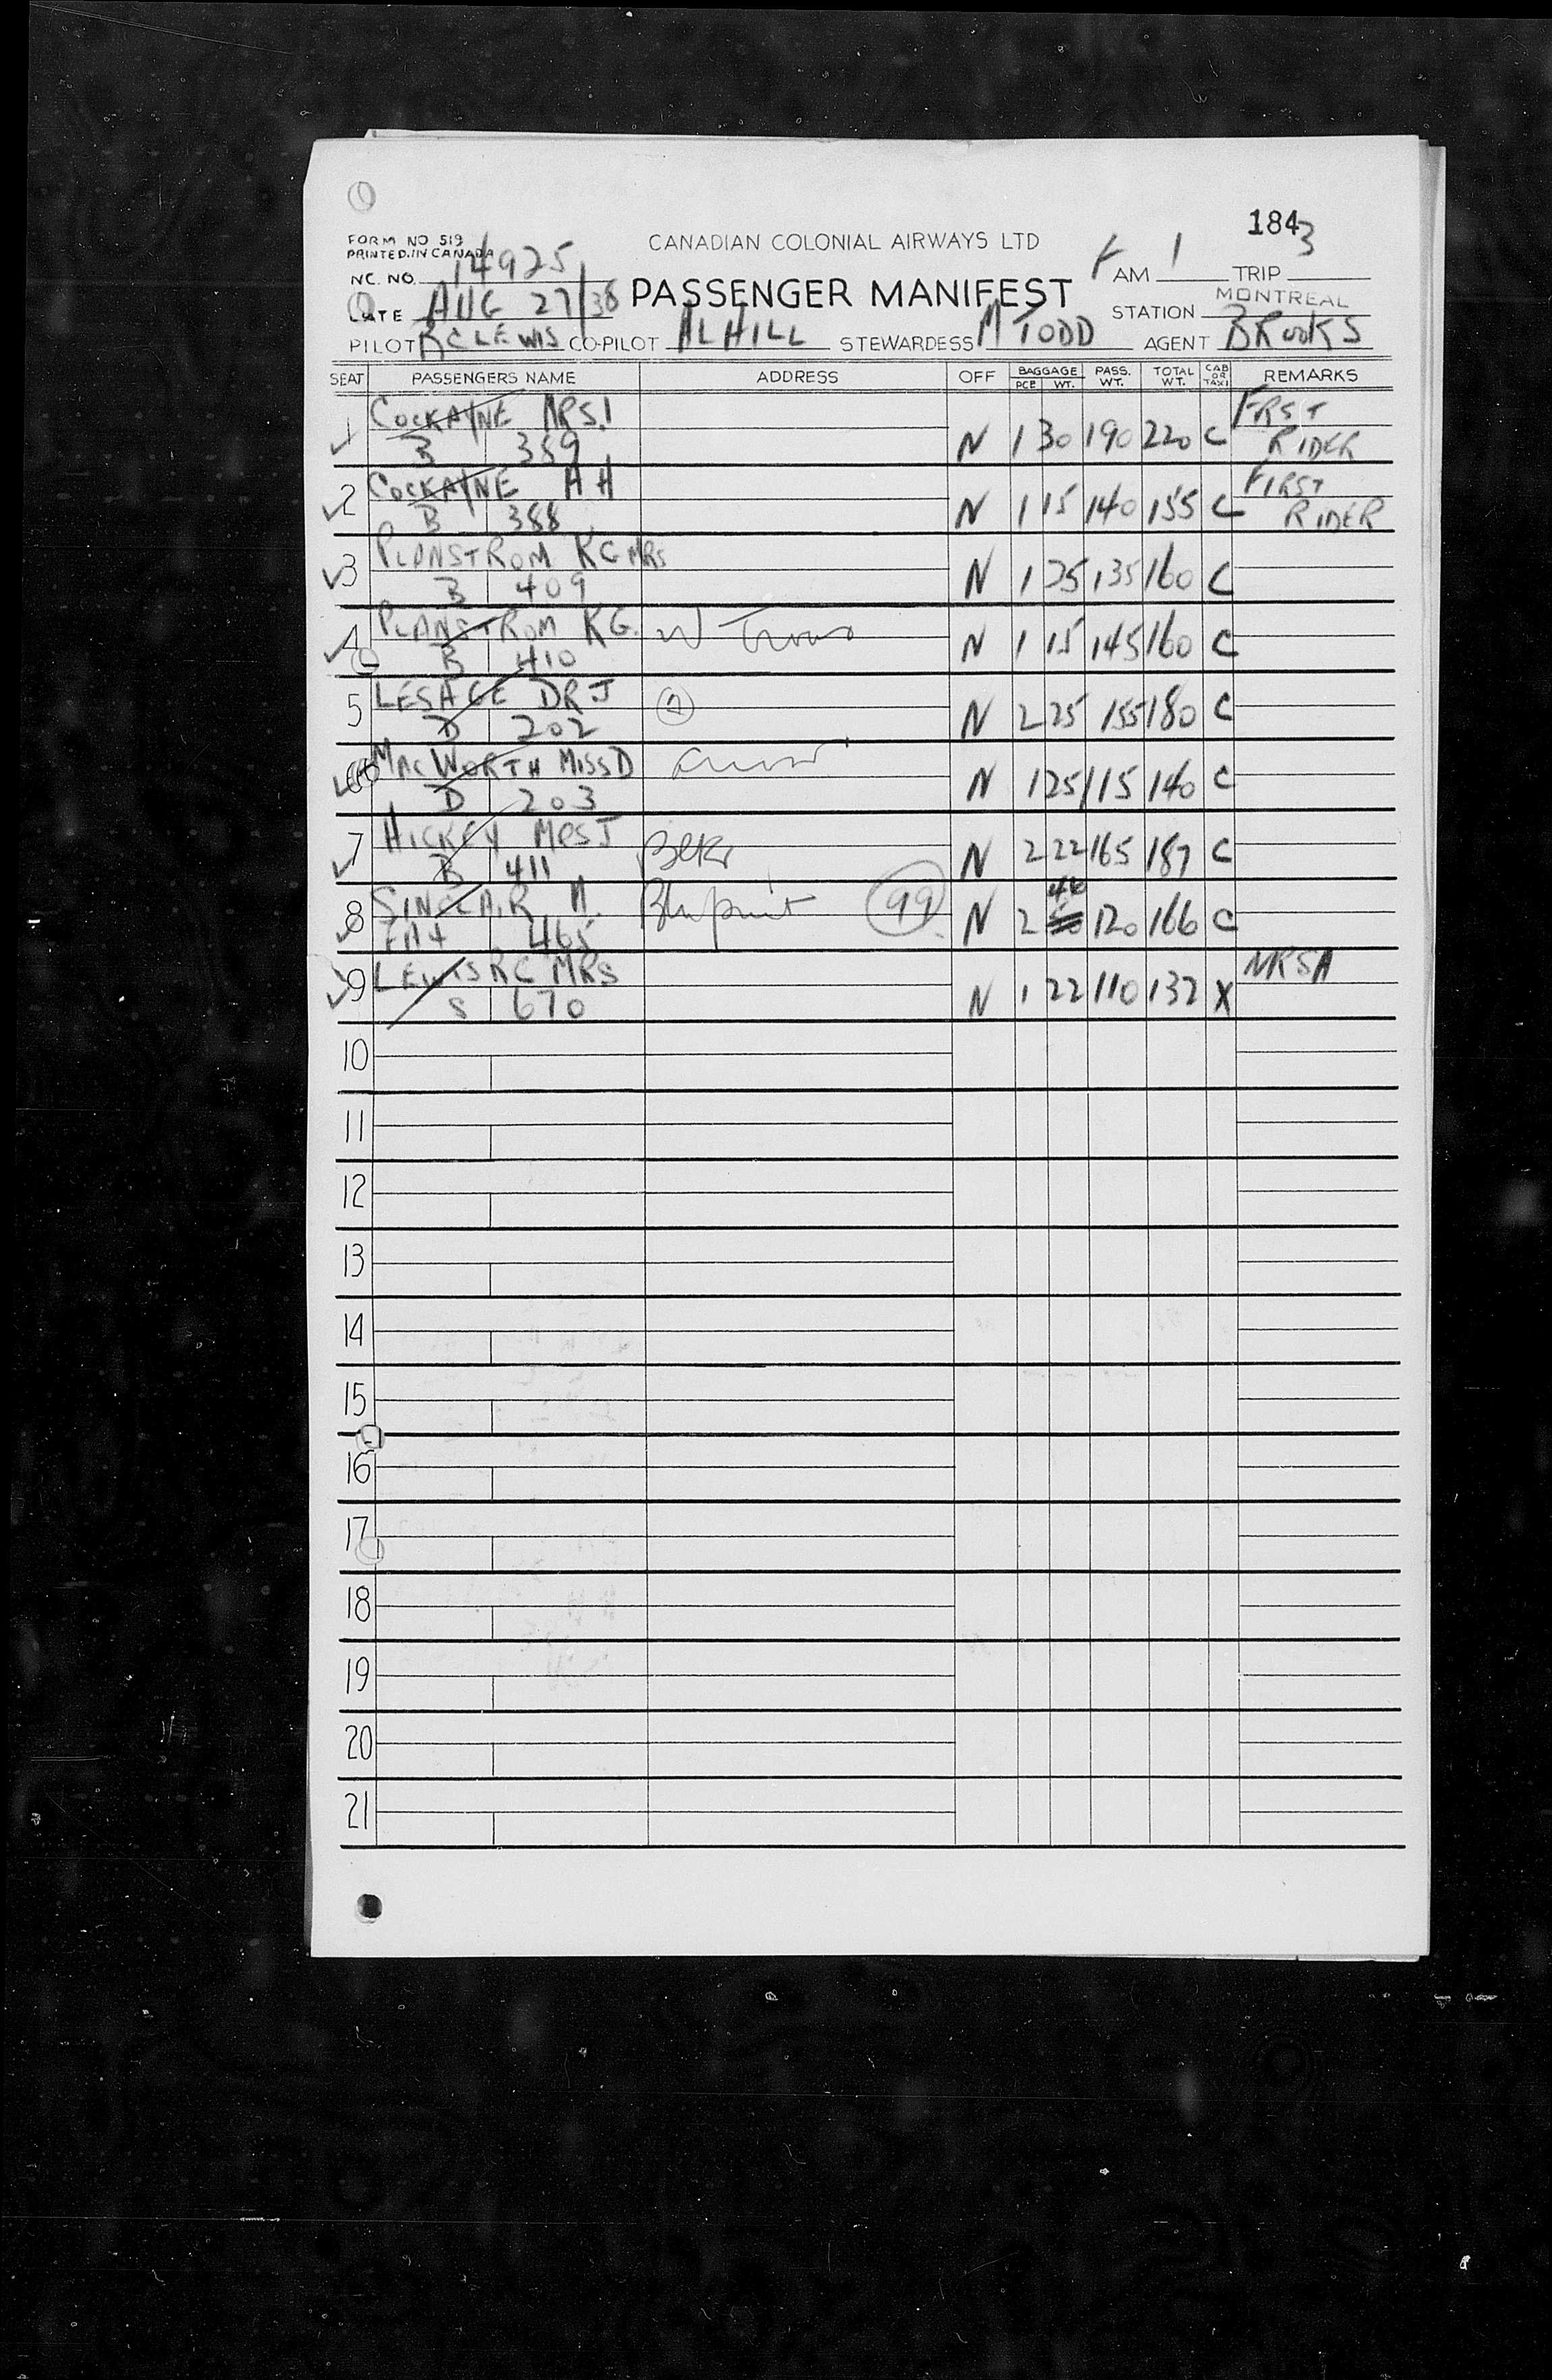 1843
FORM NO 519
PRINTED.IN CANADA
CANADIAN COLONIAL AIRWAYS LTD
NC. NO. 14925
AM 1 TRIP 3
DATE AUG 27/38 PASSENGER MANIFEST
STATION MONTREAL
PILOT RC LEWIS CO-PILOT AL HILL STEWARDESS M TODD AGENT BROOKS
SEAT PASSENGERS NAME ADDRESS OFF BAGGAGE PCE WT. PASS. WT. TOTAL WT. CAB OR TAXI REMARKS
1 COCKAYNE MRS. I FRST
B 389 N 1 30 190 220 C RIDER
2 COCKAYNE A H FIRST
B 388 N 1 15 140 155 C RIDER
3 PLANSTROM KG MRS
B 409 N 1 25 135 160 C
4 PLANSTROM KG.
B 410 N 1 15 145 160 C
5 LESAGE DR J
D 202 N 2 25 155 180 C
6 MACWORTH MISS D
D 203 N 1 25 115 140 C
7 HICKEY MRS J
B 411 N 2 22 165 187 C
8 SINCLAIR A. 99
465 N 2 46 120 166 C
9 LEWIS RC MRS NRSA
S 670 N 1 22 110 132 X
10
11
12
13
14
15
16
17
18
19
20
21